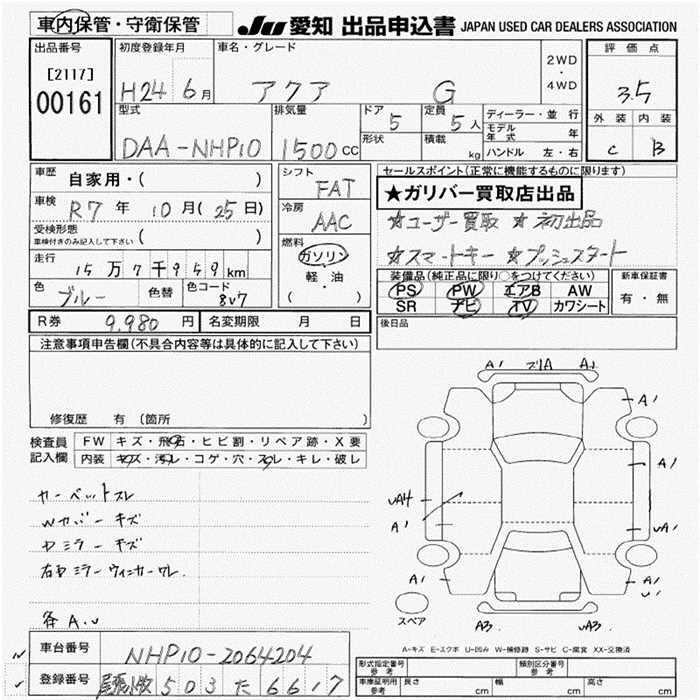 車内保管・守衛保管
JU 愛知 出品申込書 JAPAN USED CAR DEALERS ASSOCIATION
出品番号
[2117]
00161
初度登録年月
H24 6月
車名・グレード
アクア G
2WD
・
4WD
評価点
3.5
外装 内装
C B
型式
DAA-NHP10
排気量
1500cc
ドア 5
形状
定員 5人
積載 kg
ディーラー・並行
モデル年式 年
ハンドル 左・右
車歴 自家用・( )
車検 R7年 10月(25日)
受検形態
車検付きのみ記入して下さい ( )
走行 15万7千959km
色 ブルー 色替 色コード 8V7
シフト
FAT
冷房
AAC
燃料
ガソリン
・
軽・油
( )
セールスポイント(正常に機能するものに限ります)
★ガリバー買取店出品
☆ユーザー買取 ☆初出品
☆スマートキー ☆プッシュスタート
装備品(純正品に限り○をつけてください)
PS PW エアB AW
SR ナビ TV カワシート
新車保証書
有・無
R券 9,980円 名変期限 月 日
後日品
注意事項申告欄(不具合内容等は具体的に記入して下さい)
修復歴 有 (箇所 )
検査員記入欄
FW キズ・飛石・ヒビ割・リペア跡・X要
内装 キズ・汚レ・コゲ・穴・スレ・キレ・破レ
カーペットスレ
Wカバーキズ
Dミラーキズ
右ドミラーウィンカーワレ
条A.U
A1 ズリA A1
A1 A1
A1
UA4
A1 UA1
A1 A1
U1
スペア
A3 UA3
A-キズ E-エクボ U-凹み W-補修跡 S-サビ C-腐食 XX-交換済
車台番号 NHP10-2064204
登録番号 尾張小牧 503 た 6617
形式指定番号
参考
類別区分番号
参考
車庫証明用
参考
長さ cm 幅 cm 高さ cm